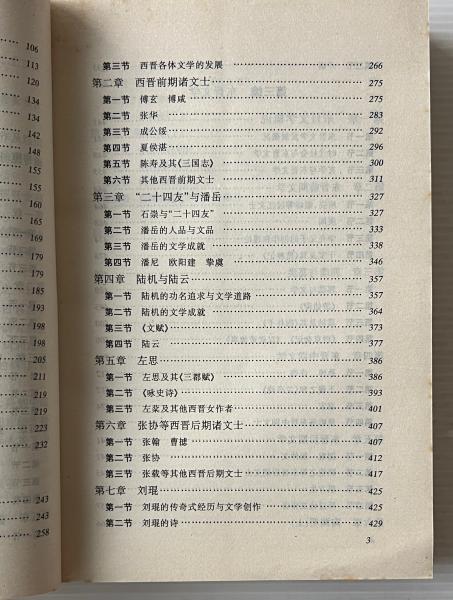 106
113
120
134
134
142
148
155
155
165
165
169
179
179
184
193
198
198
205
211
223
232
243
243
258
第三节 西晋各体文学的发展 266
第二章 西晋前期诸文士 275
第一节 傅玄 傅咸 275
第二节 张华 283
第三节 成公绥 292
第四节 夏侯湛 296
第五节 陈寿及其《三国志》 300
第六节 其他西晋前期文士 311
第三章 “二十四友”与潘岳 327
第一节 石崇与“二十四友” 327
第二节 潘岳的人品与文品 333
第三节 潘岳的文学成就 338
第四节 潘尼 欧阳建 挚虞 346
第四章 陆机与陆云 357
第一节 陆机的功名追求与文学道路 357
第二节 陆机的文学成就 364
第三节 《文赋》 373
第四节 陆云 377
第五章 左思 386
第一节 左思及其《三都赋》 386
第二节 《咏史诗》 393
第三节 左棻及其他西晋女作者 401
第六章 张协等西晋后期诸文士 407
第一节 张翰 曹摅 407
第二节 张协 412
第三节 张载等其他西晋后期文士 417
第七章 刘琨 425
第一节 刘琨的传奇式经历与文学创作 425
第二节 刘琨的诗 429
3